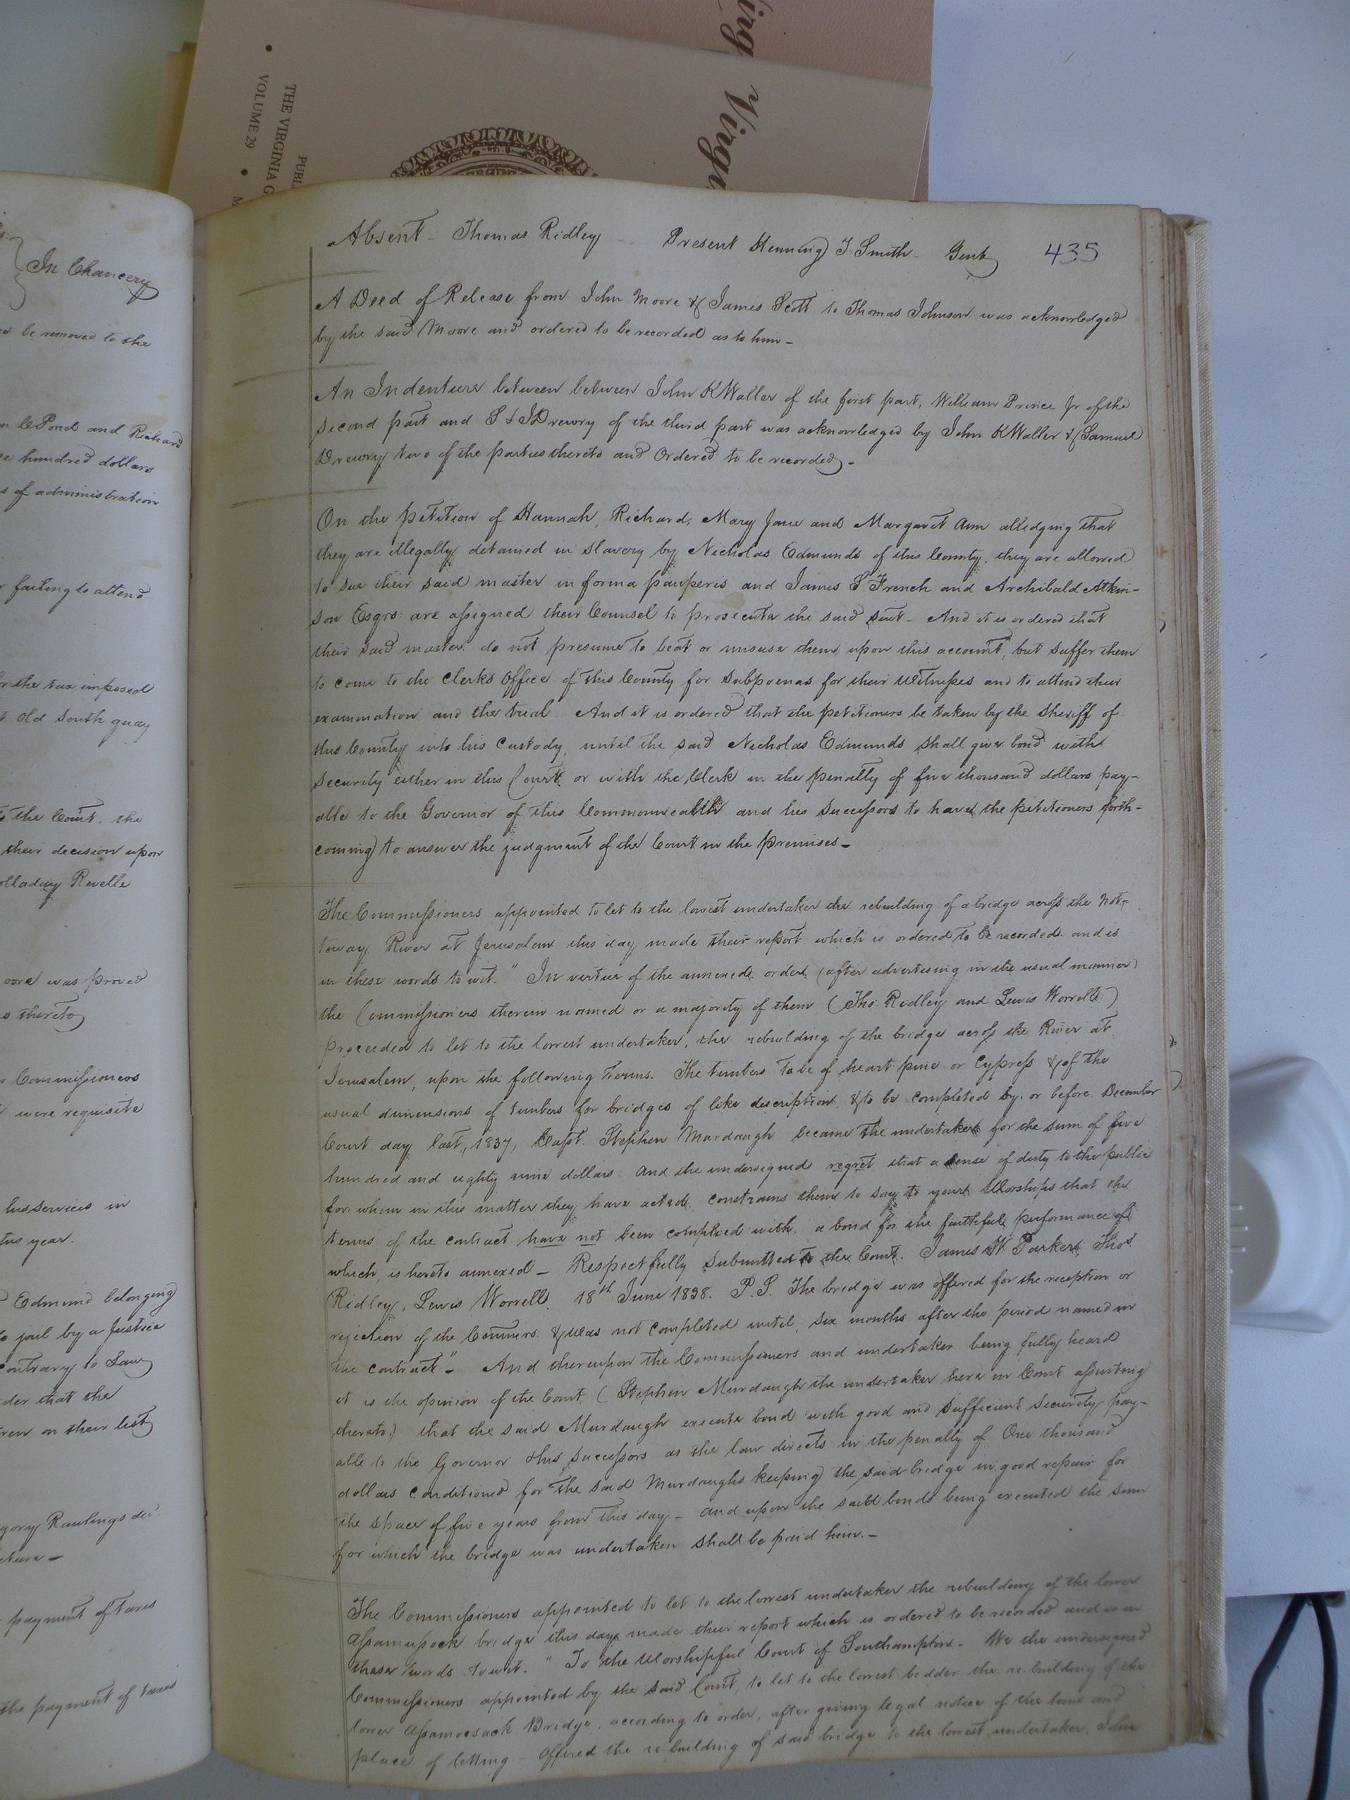 ing Virgi
THE VIRGINIA G
VOLUME 29
PUBL
In Chancery
be removed to the
Pond and Richard
hundred dollars
s of administration
failing to attend
the tax imposed
old South quay
the Court. the
their decision upon
olladay Revelle
was proved
s thereto
Commissioners
were requisite
his services in
this year.
Edmund belonging
to jail by a Justice
contrary to Law
der that the
on their list
gory Rawlings dec
payment of taxes
the payment of taxes
Absent - Thomas Ridley - Present Henning T Smith - Gent 435
A Deed of Release from John Moore & James Scott to Thomas Johnson was acknowledged
by the said Moore and ordered to be recorded as to him -
An Indenture between between John K Waller of the first part, William Prince Jr of the
second part and S & J Drewry of the third part was acknowledged by John K Waller & Samuel
Drewry two of the parties thereto and Ordered to be recorded -
On the petition of Hannah, Richard, Mary Jane and Margaret Ann alledging that
they are illegally detained in slavery by Nicholas Edmunds of this County, they are allowed
to sue their said master in forma pauperis and James S French and Archibald Atkin-
son Esqrs are assigned their Counsel to prosecute the said suit - And it is ordered that
their said master do not presume to beat or misuse them upon this account, but suffer them
to come to the Clerks Office of this County for Subpoenas for their Witnesses and to attend their
examination and the trial And it is ordered that the petitioners be taken by the Sheriff of
this County into his custody, until the said Nicholas Edmunds shall give bond with
security either in this Court or with the Clerk in the penalty of five thousand dollars pay-
able to the Governor of this Commonwealth and his Successors to have the petitioners forth-
coming to answer the judgment of the Court in the premises -
The Commissioners appointed to let to the lowest undertaker the rebuilding of a bridge across the Not-
toway River at Jerusalem this day made their report which is ordered to be recorded and is
in these words to wit. "In virtue of the annexed order (after advertising in the usual manner)
the Commissioners therein named or a majority of them (Tho. Ridley and Lewis Worrell)
proceeded to let to the lowest undertaker, the rebuilding of the bridge across the River at
Jerusalem, upon the following terms. The timbers to be of heart pine or Cypress & of the
usual dimensions of timbers for bridges of like description & to be completed by or before December
Court day last, 1837, Capt. Stephen Murdaugh became the undertaker for the sum of five
hundred and eighty nine dollars and the undersigned regret that a sense of duty to the public
for whom in this matter they have acted, constrains them to say to your Worships that the
terms of the contract have not been complied with, a bond for the faithful performance of
which is hereto annexed - Respectfully submitted to the Court. James W. Parker, Thos
Ridley, Lewis Worrell, 18th June 1838. P.S. The bridge was offered for the reception or
rejection of the Commrs. & was not completed until, six months after the period named in
the contract" - And thereupon the Commissioners and undertaker being fully heard
it is the opinion of the Court (Stephen Murdaugh the undertaker here in Court assenting
thereto) that the said Murdaugh execute bond with good and sufficient security pay-
able to the Governor & his successors as the law directs in the penalty of One thousand
dollars conditioned for the said Murdaughs keeping the said bridge in good repair for
the space of five years from this day - and upon the said bonds being executed the sum
for which the bridge was undertaken shall be paid him. -
The Commissioners appointed to let to the lowest undertaker the rebuilding of the lower
Assamusock bridge this day made their report which is ordered to be recorded and is in
these words to wit. "To the Worshipful Court of Southampton - We the undersigned
Commissioners appointed by the said Court, to let to the lowest bidder the re-building of the
lower Assamoosack Bridge, according to order, after giving legal notice of the time and
place of letting - offered the re-building of said bridge to the lowest undertaker, John